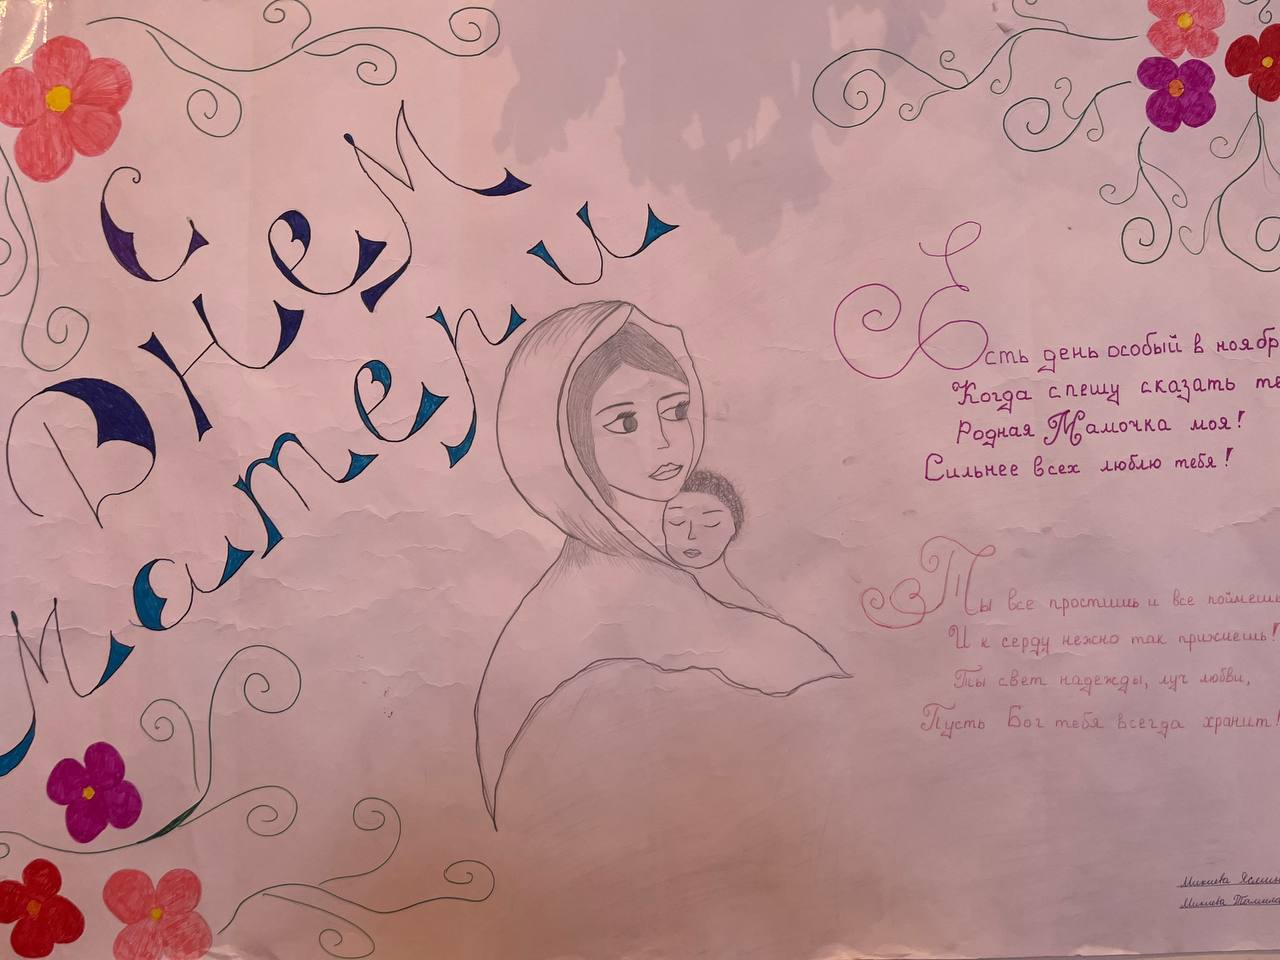 С
Днем
Матери
Есть день особый в ноябр
Когда спешу сказать те
Родная Мамочка моя!
Сильнее всех люблю тебя!
Ты все простишь и все поймешь
И к серду нежно так прижмешь!
Ты свет надежды, луч любви,
Пусть Бог тебя всегда хранит!
Микиева
Микиева